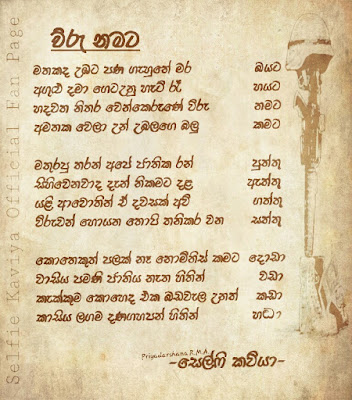 විරු නමට
මතකද උඹට පණ ගැහුනේ මර බයට
අගුළු දමා ගෙටඋනු හැටි රෑ හයට
හදවත නිතර වෙන්කෙරුණේ විරු නමට
අමතක වෙලා උන් උඹලගෙ බලු කමට
මතුරපු තරන් අපේ ජාතික රන් පුත්තු
සිහිවෙනවාද දැන් නිකමට දළ ඇත්තු
යළි ආවොතින් ඒ දවසක් අවි ගත්තු
විරුවන් හොයන තොපි තනිකර වන සත්තු
කොතෙකුත් පලක් නෑ තොම්නිස් කමට දොඩා
වාසිය පමණි ජාතිය නැත හිතින් වඩා
කැක්කුම කොහෙද එක බඩවැල උනත් කඩා
කාසිය ලගම දණගහපන් හිතින් හඬා
Priyadarshana R.M.A.
-සෙල්ෆි කවියා-
Selfie Kaviya Official Fan Page